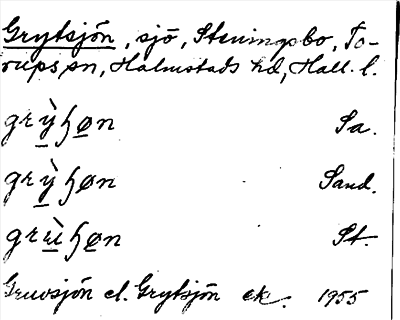 Grytsjön, sjö, Steningsbo, To-
rups sn, Halmstads hd, Hall. l.
grỳɧøn Sa.
grỳɧøn Sand.
grùɧøn St.
Gruvsjön el. Grytsjön ek. 1955